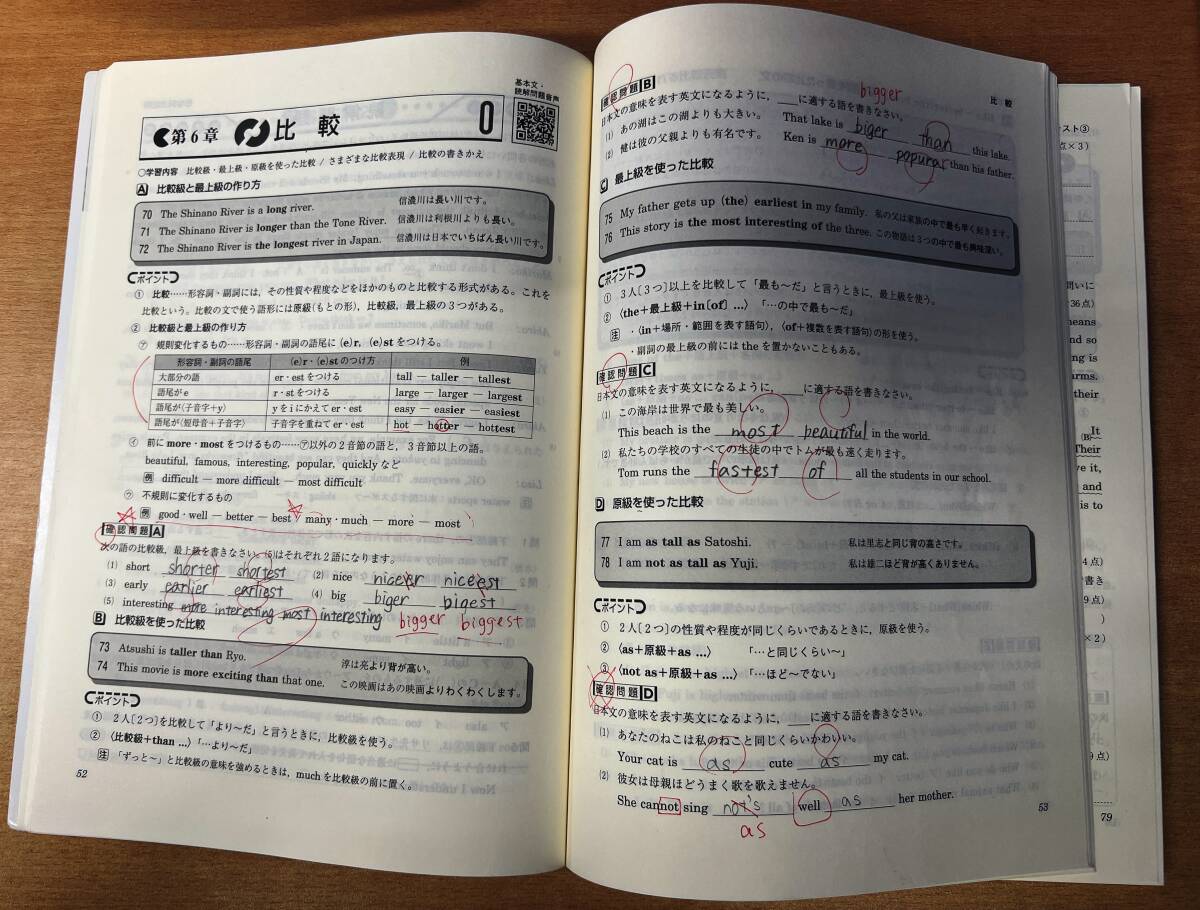 基本文・
読解問題音声
第6章 比較 0
○学習内容 比較級・最上級・原級を使った比較 / さまざまな比較表現 / 比較の書きかえ
A 比較級と最上級の作り方
70 The Shinano River is a long river. 信濃川は長い川です。
71 The Shinano River is longer than the Tone River. 信濃川は利根川よりも長い。
72 The Shinano River is the longest river in Japan. 信濃川は日本でいちばん長い川です。
ポイント
① 比較……形容詞・副詞には，その性質や程度などをほかのものと比較する形式がある。これを
比較という。比較の文で使う語形には原級(もとの形)，比較級，最上級の3つがある。
② 比較級と最上級の作り方
㋐ 規則変化するもの……形容詞・副詞の語尾に (e)r，(e)stをつける。
形容詞・副詞の語尾 (e)r・(e)stのつけ方 例
大部分の語 er・estをつける tall — taller — tallest
語尾が e r・stをつける large — larger — largest
語尾が〈子音字＋y〉 yをiにかえて er・est easy — easier — easiest
語尾が〈短母音＋子音字〉 子音字を重ねて er・est hot — hotter — hottest
㋑ 前に more・mostをつけるもの……㋐以外の2音節の語と，3音節以上の語。
beautiful, famous, interesting, popular, quickly など
例 difficult — more difficult — most difficult
㋒ 不規則に変化するもの
例 good・well — better — best many・much — more — most
確認問題 A
次の語の比較級，最上級を書きなさい。(5)はそれぞれ2語になります。
(1) short shorter shortest (2) nice niceer niceest
(3) early earlier earliest (4) big biger bigest
(5) interesting more interesting most interesting bigger biggest
B 比較級を使った比較
73 Atsushi is taller than Ryo. 淳は亮より背が高い。
74 This movie is more exciting than that one. この映画はあの映画よりもわくわくします。
ポイント
① 2人〔2つ〕を比較して「より〜だ」と言うときに，比較級を使う。
② 〈比較級＋than …〉「…より〜だ」
注 「ずっと〜」と比較級の意味を強めるときは，muchを比較級の前に置く。
52
比較
確認問題 B
bigger
日本文の意味を表す英文になるように，＿＿に適する語を書きなさい。
(1) あの湖はこの湖よりも大きい。 That lake is biger than this lake.
(2) 健は彼の父親よりも有名です。 Ken is more popurar than his father.
C 最上級を使った比較
75 My father gets up (the) earliest in my family. 私の父は家族の中で最も早く起きます。
76 This story is the most interesting of the three. この物語は3つの中で最も興味深い。
ポイント
① 3人〔3つ〕以上を比較して「最も〜だ」と言うときに，最上級を使う。
② 〈the＋最上級＋in〔of〕…〉「…の中で最も〜だ」
注 ・〈in＋場所・範囲を表す語句〉，〈of＋複数を表す語句〉の形を使う。
・副詞の最上級の前にはtheを置かないこともある。
確認問題 C
日本文の意味を表す英文になるように，＿＿に適する語を書きなさい。
(1) この海岸は世界で最も美しい。
This beach is the most beautiful in the world.
(2) 私たちの学校のすべての生徒の中でトムが最も速く走ります。
Tom runs the fastest of all the students in our school.
D 原級を使った比較
77 I am as tall as Satoshi. 私は里志と同じ背の高さです。
78 I am not as tall as Yuji. 私は雄二ほど背が高くありません。
ポイント
① 2人〔2つ〕の性質や程度が同じくらいであるときに，原級を使う。
② 〈as＋原級＋as …〉 「…と同じくらい〜」
③ 〈not as＋原級＋as …〉 「…ほど〜でない」
確認問題 D
日本文の意味を表す英文になるように，＿＿に適する語を書きなさい。
(1) あなたのねこは私のねこと同じくらいかわいい。
Your cat is as cute as my cat.
(2) 彼女は母親ほどうまく歌を歌えません。
She cannot sing not's well as her mother.
as
53
スト③
点×3)
問いに
36点)
means
nd so
ng is
arms.
their
It
(B)
Their
ve it,
and
is to
4点)
書き
9点)
×2)
9点)
79